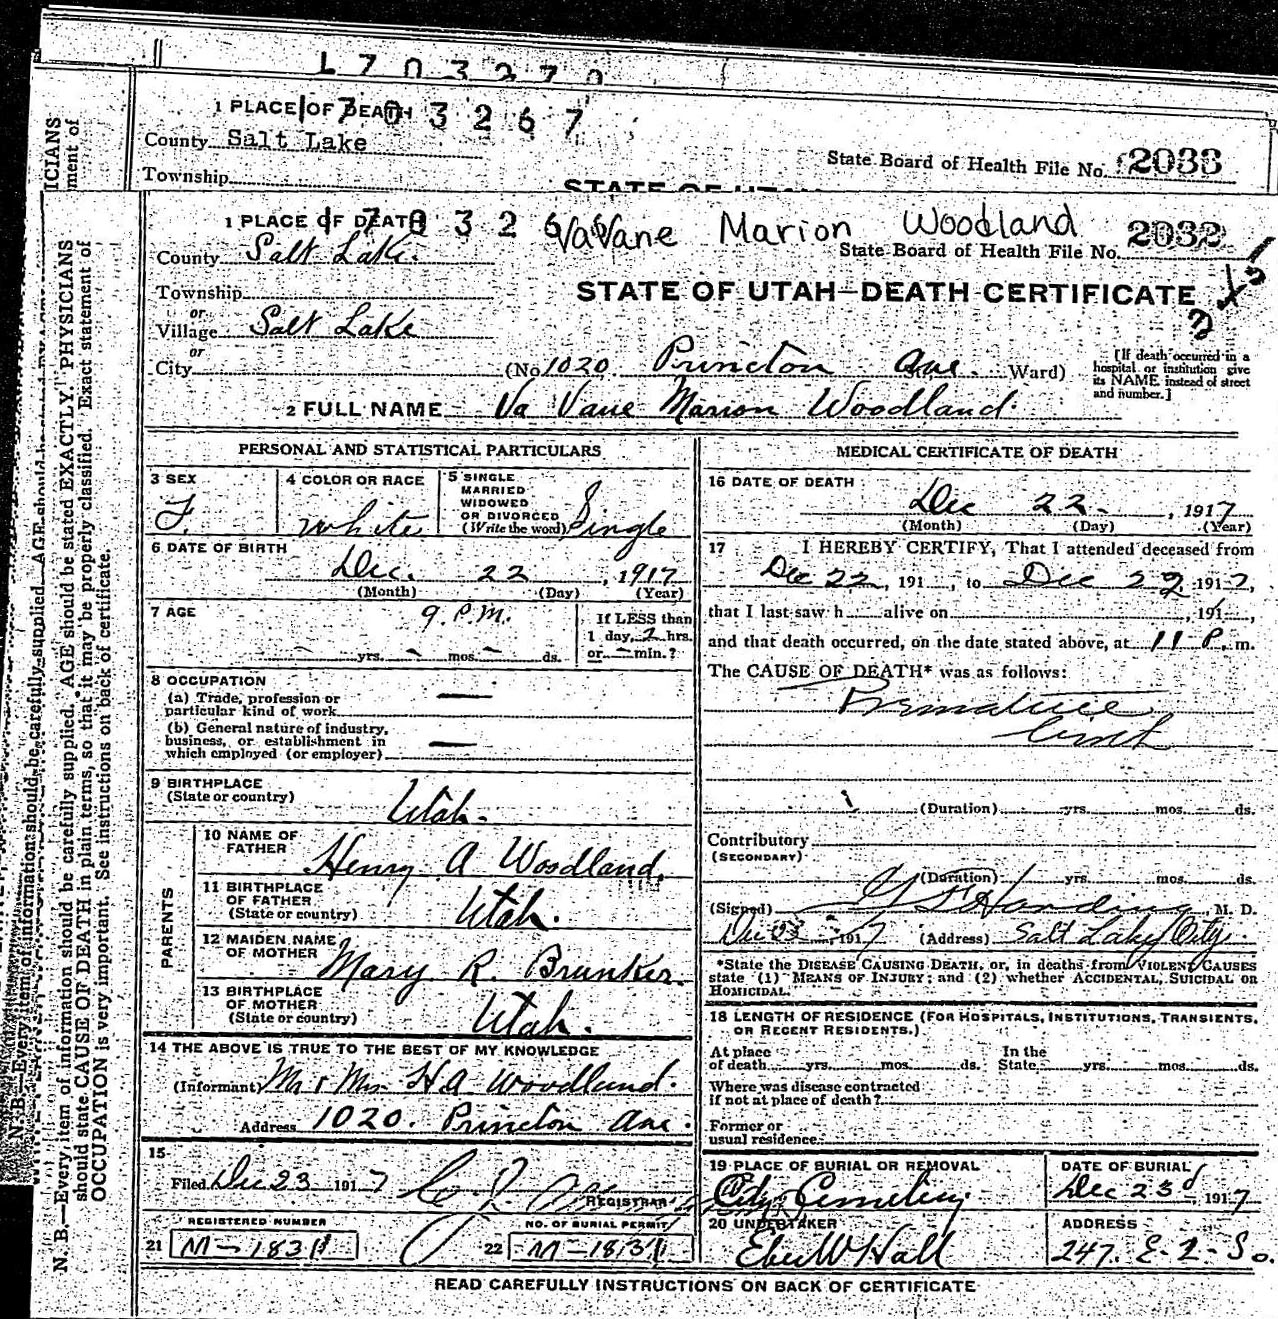 1 7 0 3 2 7 0
1 PLACE OF DEATH 1 7 0 3 2 6 7
County Salt Lake
State Board of Health File No. 2033
Township
STATE OF UTAH
ICIANS
ment of
1 PLACE OF DEATH 1 7 0 3 2 6 VaVane Marion Woodland
County Salt Lake. State Board of Health File No. 2032
Township
STATE OF UTAH—DEATH CERTIFICATE
or
Village Salt Lake
or
City (No. 1020 Princton Ave. Ward)
[If death occurred in a hospital or institution give its NAME instead of street and number.]
2 FULL NAME Va Vane Marion Woodland.
PERSONAL AND STATISTICAL PARTICULARS
3 SEX
F.
4 COLOR OR RACE
White
5 SINGLE
MARRIED
WIDOWED
OR DIVORCED
(Write the word) Single
6 DATE OF BIRTH
Dec. 22, 1917
(Month) (Day) (Year)
7 AGE 9 P.M.
If LESS than
1 day, 2 hrs.
yrs. – mos. – ds. or – min.?
8 OCCUPATION
(a) Trade, profession or
particular kind of work —
(b) General nature of industry,
business, or establishment in
which employed (or employer) —
9 BIRTHPLACE
(State or country) Utah.
PARENTS
10 NAME OF
FATHER Henry A Woodland.
11 BIRTHPLACE
OF FATHER
(State or country) Utah.
12 MAIDEN NAME
OF MOTHER Mary R. Brunker.
13 BIRTHPLACE
OF MOTHER
(State or country) Utah.
14 THE ABOVE IS TRUE TO THE BEST OF MY KNOWLEDGE
(Informant) Mr & Mrs H.A Woodland.
Address 1020. Princton Ave.
15
Filed Dec 23 1917
REGISTRAR
REGISTERED NUMBER
21 M-1831
NO. OF BURIAL PERMIT
22 M-1831
MEDICAL CERTIFICATE OF DEATH
16 DATE OF DEATH
Dec 22, 1917
(Month) (Day) (Year)
17 I HEREBY CERTIFY, That I attended deceased from
Dec 22, 191 , to Dec 22 1917,
that I last saw h alive on , 191 ,
and that death occurred, on the date stated above, at 11 P. m.
The CAUSE OF DEATH* was as follows:
Premature
birth
(Duration) yrs. mos. ds.
Contributory
(SECONDARY)
(Duration) yrs. mos. ds.
(Signed) Harding M. D.
Dec 23 1917 (Address) Salt Lake City.
*State the DISEASE CAUSING DEATH, or, in deaths from VIOLENT CAUSES
state (1) MEANS OF INJURY; and (2) whether ACCIDENTAL, SUICIDAL OR
HOMICIDAL.
18 LENGTH OF RESIDENCE (FOR HOSPITALS, INSTITUTIONS, TRANSIENTS,
OR RECENT RESIDENTS.)
At place
of death yrs. mos. ds. In the State yrs. mos. ds.
Where was disease contracted
if not at place of death?
Former or
usual residence
19 PLACE OF BURIAL OR REMOVAL
City Cemetery.
DATE OF BURIAL
Dec 23d, 1917
20 UNDERTAKER
Eber W Hall
ADDRESS
247. E. 2-So.
READ CAREFULLY INSTRUCTIONS ON BACK OF CERTIFICATE
N. B.—Every item of information should be carefully supplied. AGE should be stated EXACTLY. PHYSICIANS
should state CAUSE OF DEATH in plain terms, so that it may be properly classified. Exact statement of
OCCUPATION is very important. See instructions on back of certificate.